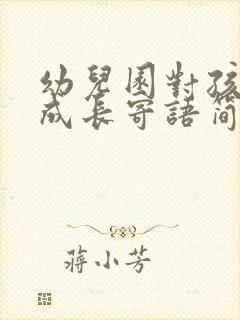 幼兒園對孩
成長寄語簡
蔣小芳